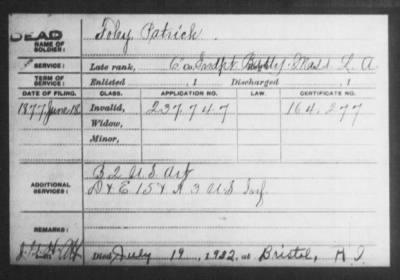 DEAD
NAME OF SOLDIER: Foley Patrick
SERVICE: Late rank, Co. Indpt. S. Mass L. A
TERM OF SERVICE: Enlisted , 1 Discharged , 1
DATE OF FILING. CLASS. APPLICATION NO. LAW. CERTIFICATE NO.
1877 June 18 Invalid, 237.747 164.277
Widow,
Minor,
ADDITIONAL SERVICES: B 2 U.S. Art
D & E 15 & A 3 U.S Inf.
REMARKS:
Died July 19, 1922, at Bristol, R.I.